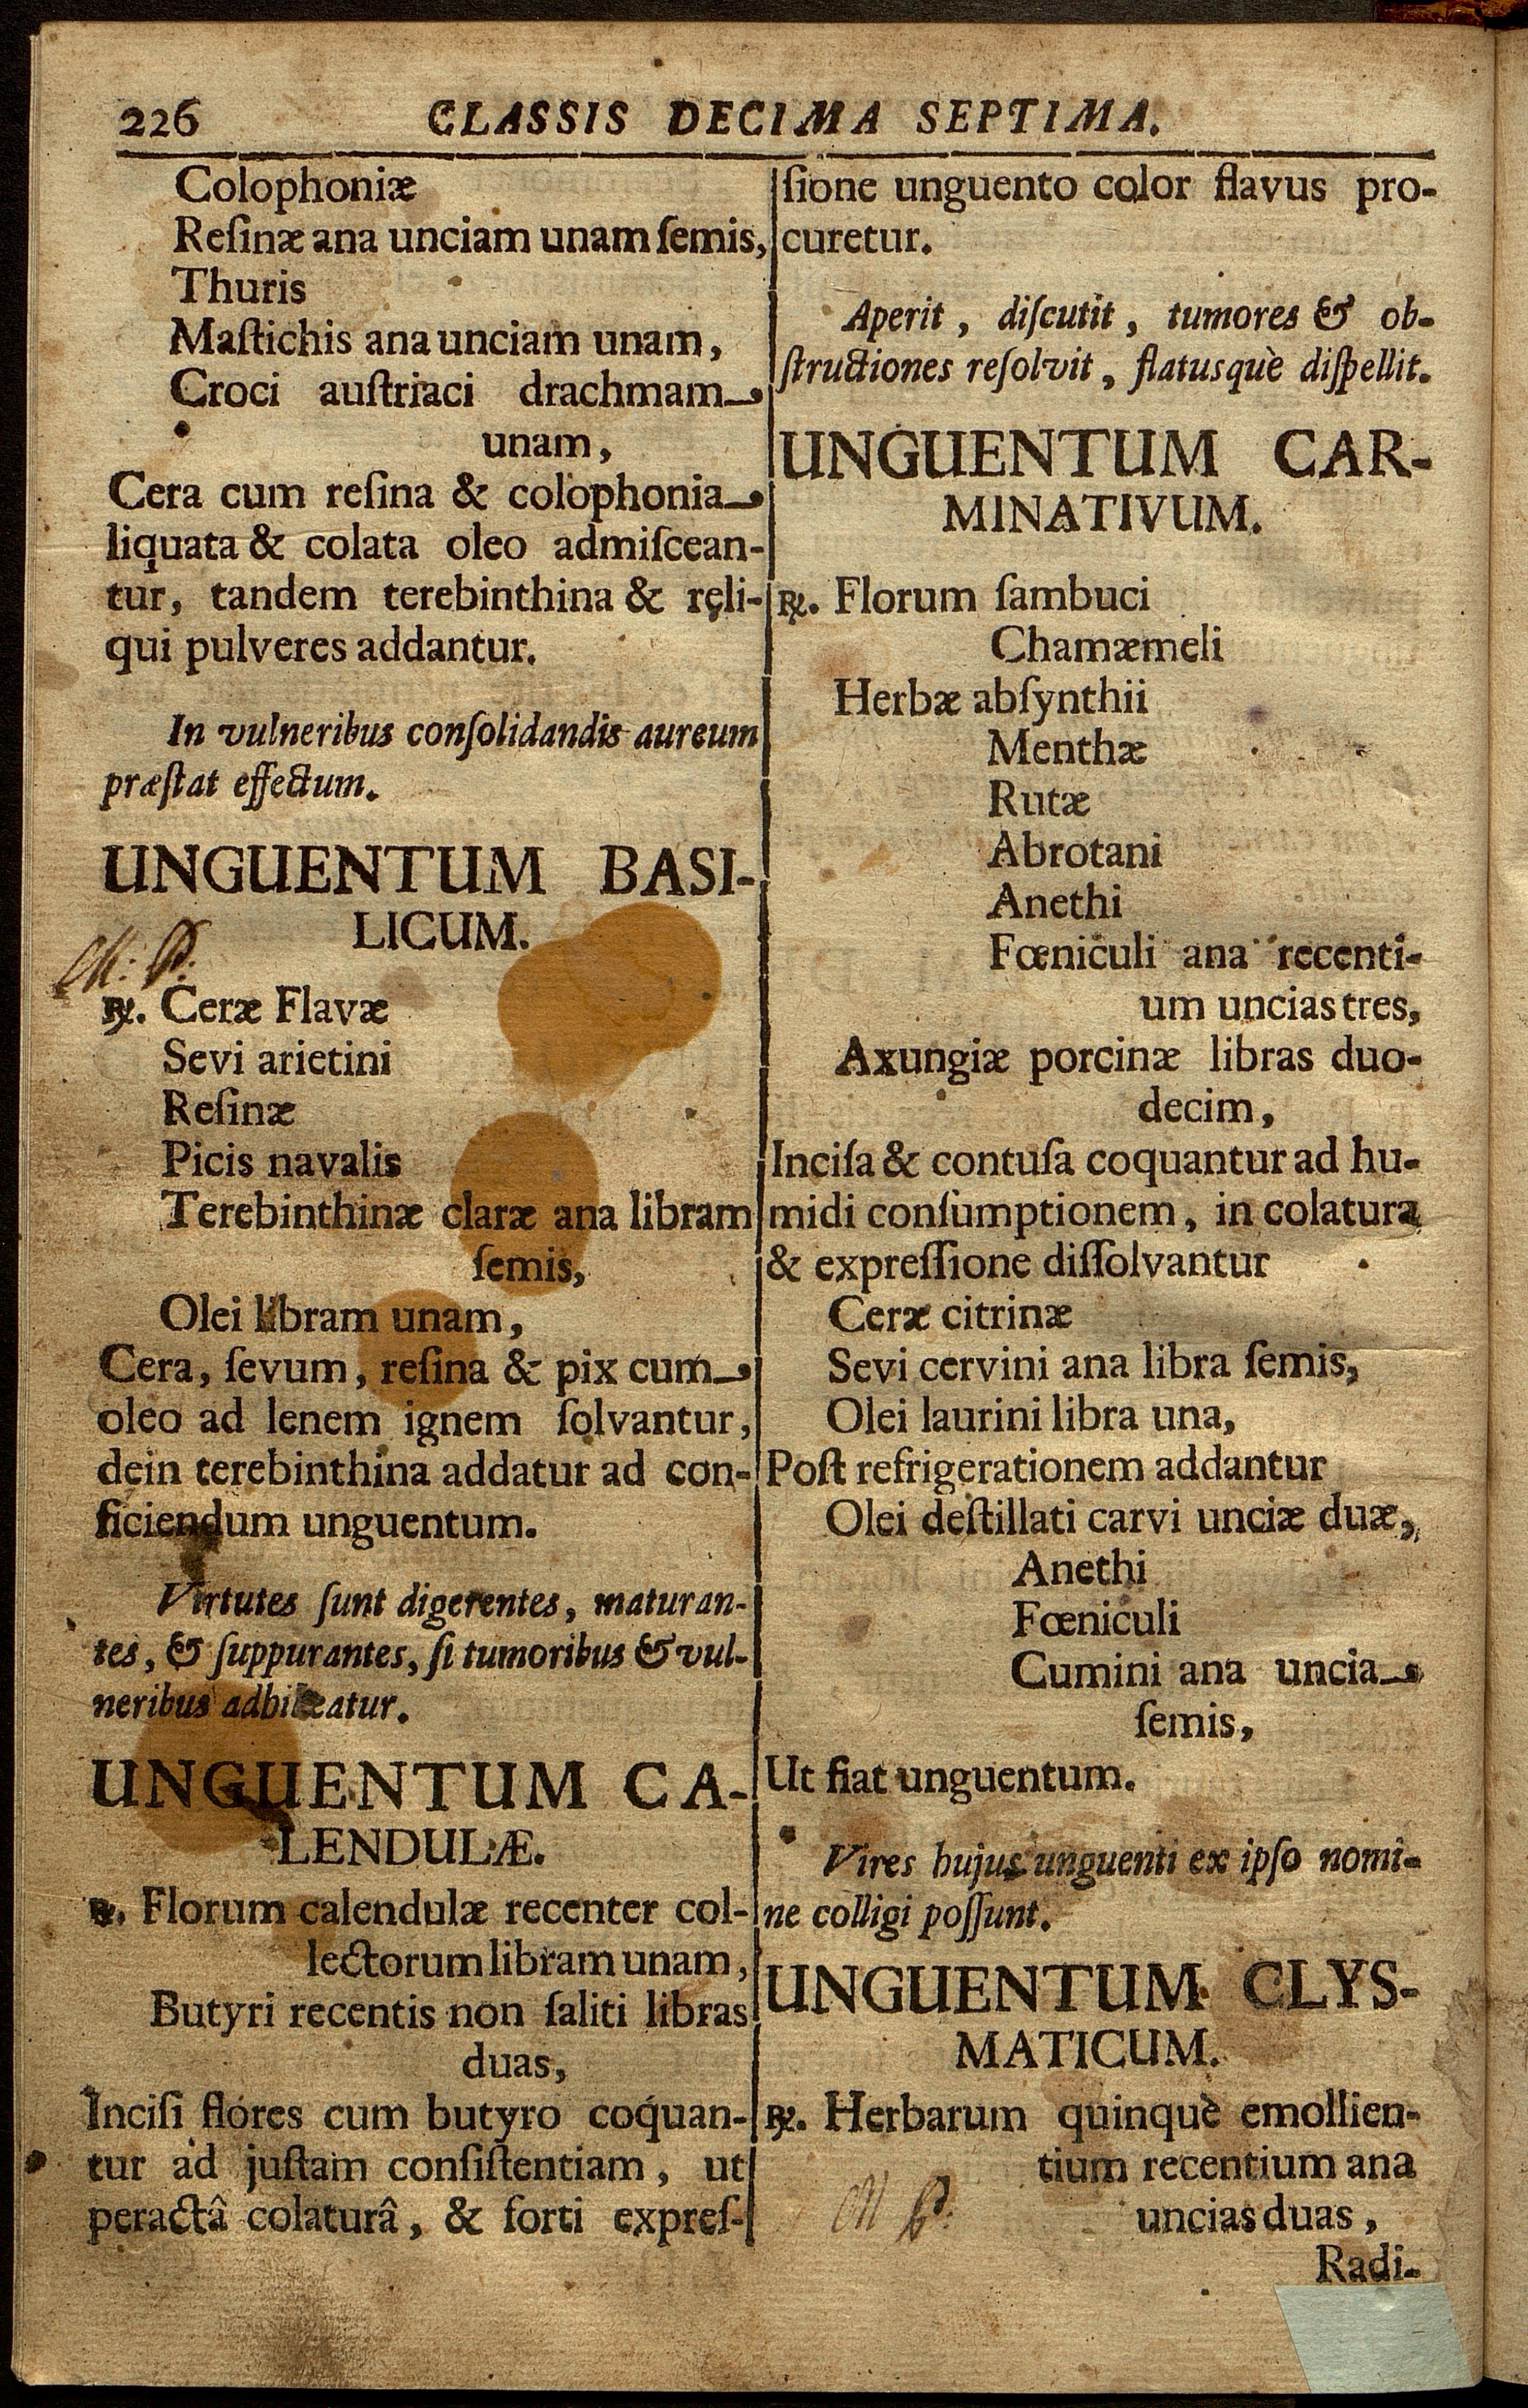 226 CLASSIS DECIMA SEPTIMA.
Colophoniæ
Reſinæ ana unciam unam ſemis,
Thuris
Maſtichis ana unciam unam,
Croci auſtriaci drachmam
unam,
Cera cum reſina & colophonia
liquata & colata oleo admiſcean-
tur, tandem terebinthina & reli-
qui pulveres addantur.
In vulneribus conſolidandis aureum
præſtat effectum.
UNGUENTUM BASI-
LICUM.
M: P:
℞. Ceræ Flavæ
Sevi arietini
Reſinæ
Picis navalis
Terebinthinæ claræ ana libram
ſemis,
Olei libram unam,
Cera, ſevum, reſina & pix cum
oleo ad lenem ignem ſolvantur,
dein terebinthina addatur ad con-
ficiendum unguentum.
Virtutes ſunt digerentes, maturan-
tes, & ſuppurantes, ſi tumoribus & vul-
neribus adhibeatur.
UNGUENTUM CA-
LENDULÆ.
℞. Florum calendulæ recenter col-
lectorum libram unam,
Butyri recentis non ſaliti libras
duas,
Inciſi flores cum butyro coquan-
tur ad juſtam conſiſtentiam, ut
peractâ colaturâ, & forti expreſ-
ſione unguento color flavus pro-
curetur.
Aperit, diſcutit, tumores & ob-
ſtructiones reſolvit, flatusquè diſpellit.
UNGUENTUM CAR-
MINATIVUM.
℞. Florum ſambuci
Chamæmeli
Herbæ abſynthii
Menthæ
Rutæ
Abrotani
Anethi
Fœniculi ana recenti-
um uncias tres,
Axungiæ porcinæ libras duo-
decim,
Inciſa & contuſa coquantur ad hu-
midi conſumptionem, in colatura
& expreſſione diſſolvantur
Ceræ citrinæ
Sevi cervini ana libra ſemis,
Olei laurini libra una,
Poſt refrigerationem addantur
Olei deſtillati carvi unciæ duæ,
Anethi
Fœniculi
Cumini ana uncia
ſemis,
Ut fiat unguentum.
Vires hujus unguenti ex ipſo nomi-
ne colligi poſſunt.
UNGUENTUM CLYS-
MATICUM.
℞. Herbarum quinquè emollien-
tium recentium ana
M P:
uncias duas,
Radi-